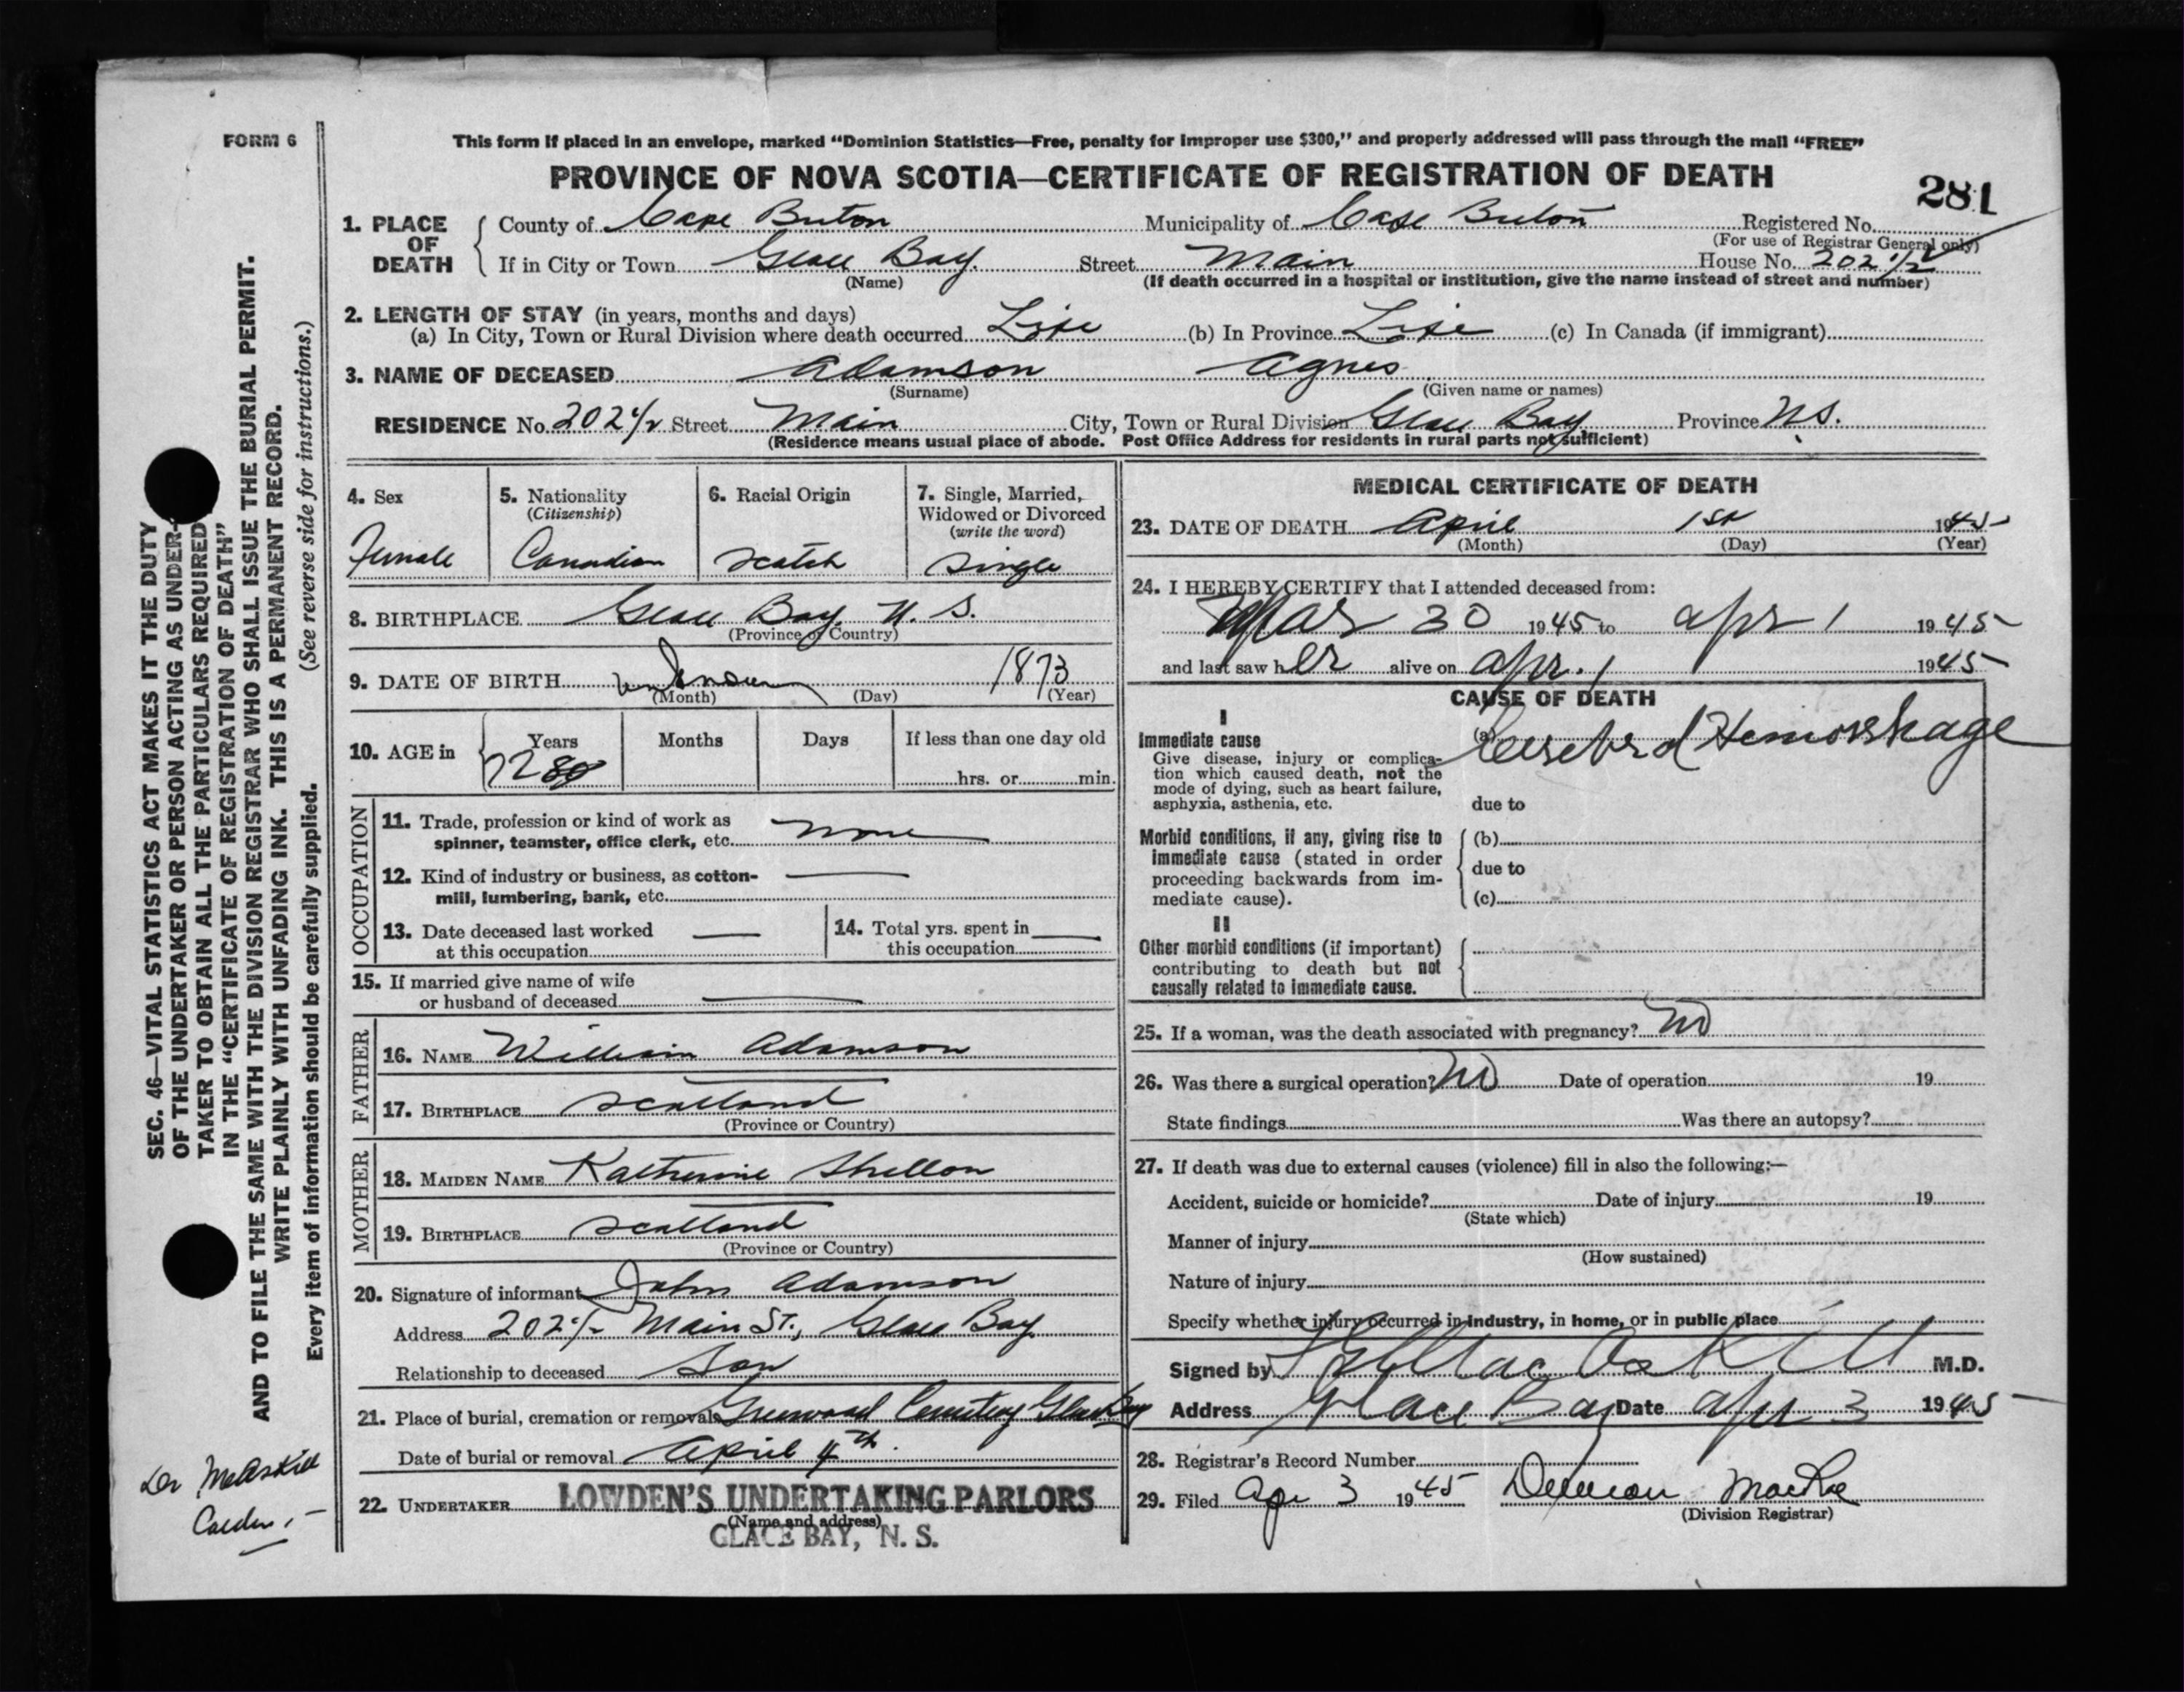 FORM 6
This form if placed in an envelope, marked "Dominion Statistics—Free, penalty for improper use $300," and properly addressed will pass through the mail "FREE"
PROVINCE OF NOVA SCOTIA—CERTIFICATE OF REGISTRATION OF DEATH
281
1. PLACE OF DEATH
County of Cape Breton Municipality of Cape Breton Registered No.
(For use of Registrar General only)
If in City or Town Glace Bay Street Main House No. 202 1/2
(Name) (If death occurred in a hospital or institution, give the name instead of street and number)
2. LENGTH OF STAY (in years, months and days)
(a) In City, Town or Rural Division where death occurred Life (b) In Province Life (c) In Canada (if immigrant)
3. NAME OF DECEASED Adamson Agnes
(Surname) (Given name or names)
RESIDENCE No. 202 1/2 Street Main City, Town or Rural Division Glace Bay Province N.S.
(Residence means usual place of abode. Post Office Address for residents in rural parts not sufficient)
4. Sex
Female
5. Nationality
(Citizenship)
Canadian
6. Racial Origin
Scotch
7. Single, Married,
Widowed or Divorced
(write the word)
Single
8. BIRTHPLACE Glace Bay N. S.
(Province or Country)
9. DATE OF BIRTH unknown 1873
(Month) (Day) (Year)
10. AGE in
Years Months Days If less than one day old
72 80 hrs. or min.
OCCUPATION
11. Trade, profession or kind of work as
spinner, teamster, office clerk, etc. none
12. Kind of industry or business, as cotton-
mill, lumbering, bank, etc.
13. Date deceased last worked
at this occupation
14. Total yrs. spent in
this occupation
15. If married give name of wife
or husband of deceased
FATHER
16. NAME William Adamson
17. BIRTHPLACE Scotland
(Province or Country)
MOTHER
18. MAIDEN NAME Katherine
19. BIRTHPLACE Scotland
(Province or Country)
20. Signature of informant John Adamson
Address 202 1/2 Main St., Glace Bay
Relationship to deceased Son
21. Place of burial, cremation or removal Greenwood Cemetery Glace Bay
Date of burial or removal April 4th.
22. UNDERTAKER LOWDEN'S UNDERTAKING PARLORS
(Name and address)
GLACE BAY, N. S.
MEDICAL CERTIFICATE OF DEATH
23. DATE OF DEATH April 1st 1945
(Month) (Day) (Year)
24. I HEREBY CERTIFY that I attended deceased from:
Mar 30 1945 to Apr 1 1945
and last saw her alive on Apr. 1 1945
CAUSE OF DEATH
I
Immediate cause
Give disease, injury or complica-
tion which caused death, not the
mode of dying, such as heart failure,
asphyxia, asthenia, etc.
(a) Cerebral Hemorrhage
due to
Morbid conditions, if any, giving rise to
immediate cause (stated in order
proceeding backwards from im-
mediate cause).
(b)
due to
(c)
II
Other morbid conditions (if important)
contributing to death but not
causally related to immediate cause.
25. If a woman, was the death associated with pregnancy? No
26. Was there a surgical operation? No Date of operation 19
State findings Was there an autopsy?
27. If death was due to external causes (violence) fill in also the following:—
Accident, suicide or homicide? Date of injury 19
(State which)
Manner of injury
(How sustained)
Nature of injury
Specify whether injury occurred in industry, in home, or in public place
Signed by MacAskill M.D.
Address Glace Bay Date Apr 3 1945
28. Registrar's Record Number
29. Filed Apr 3 1945 MacRae
(Division Registrar)
SEC. 46—VITAL STATISTICS ACT MAKES IT THE DUTY
OF THE UNDERTAKER OR PERSON ACTING AS UNDER-
TAKER TO OBTAIN ALL THE PARTICULARS REQUIRED
IN THE "CERTIFICATE OF REGISTRATION OF DEATH"
AND TO FILE THE SAME WITH THE DIVISION REGISTRAR WHO SHALL ISSUE THE BURIAL PERMIT.
WRITE PLAINLY WITH UNFADING INK. THIS IS A PERMANENT RECORD.
Every item of information should be carefully supplied. (See reverse side for instructions.)
Dr McAskill